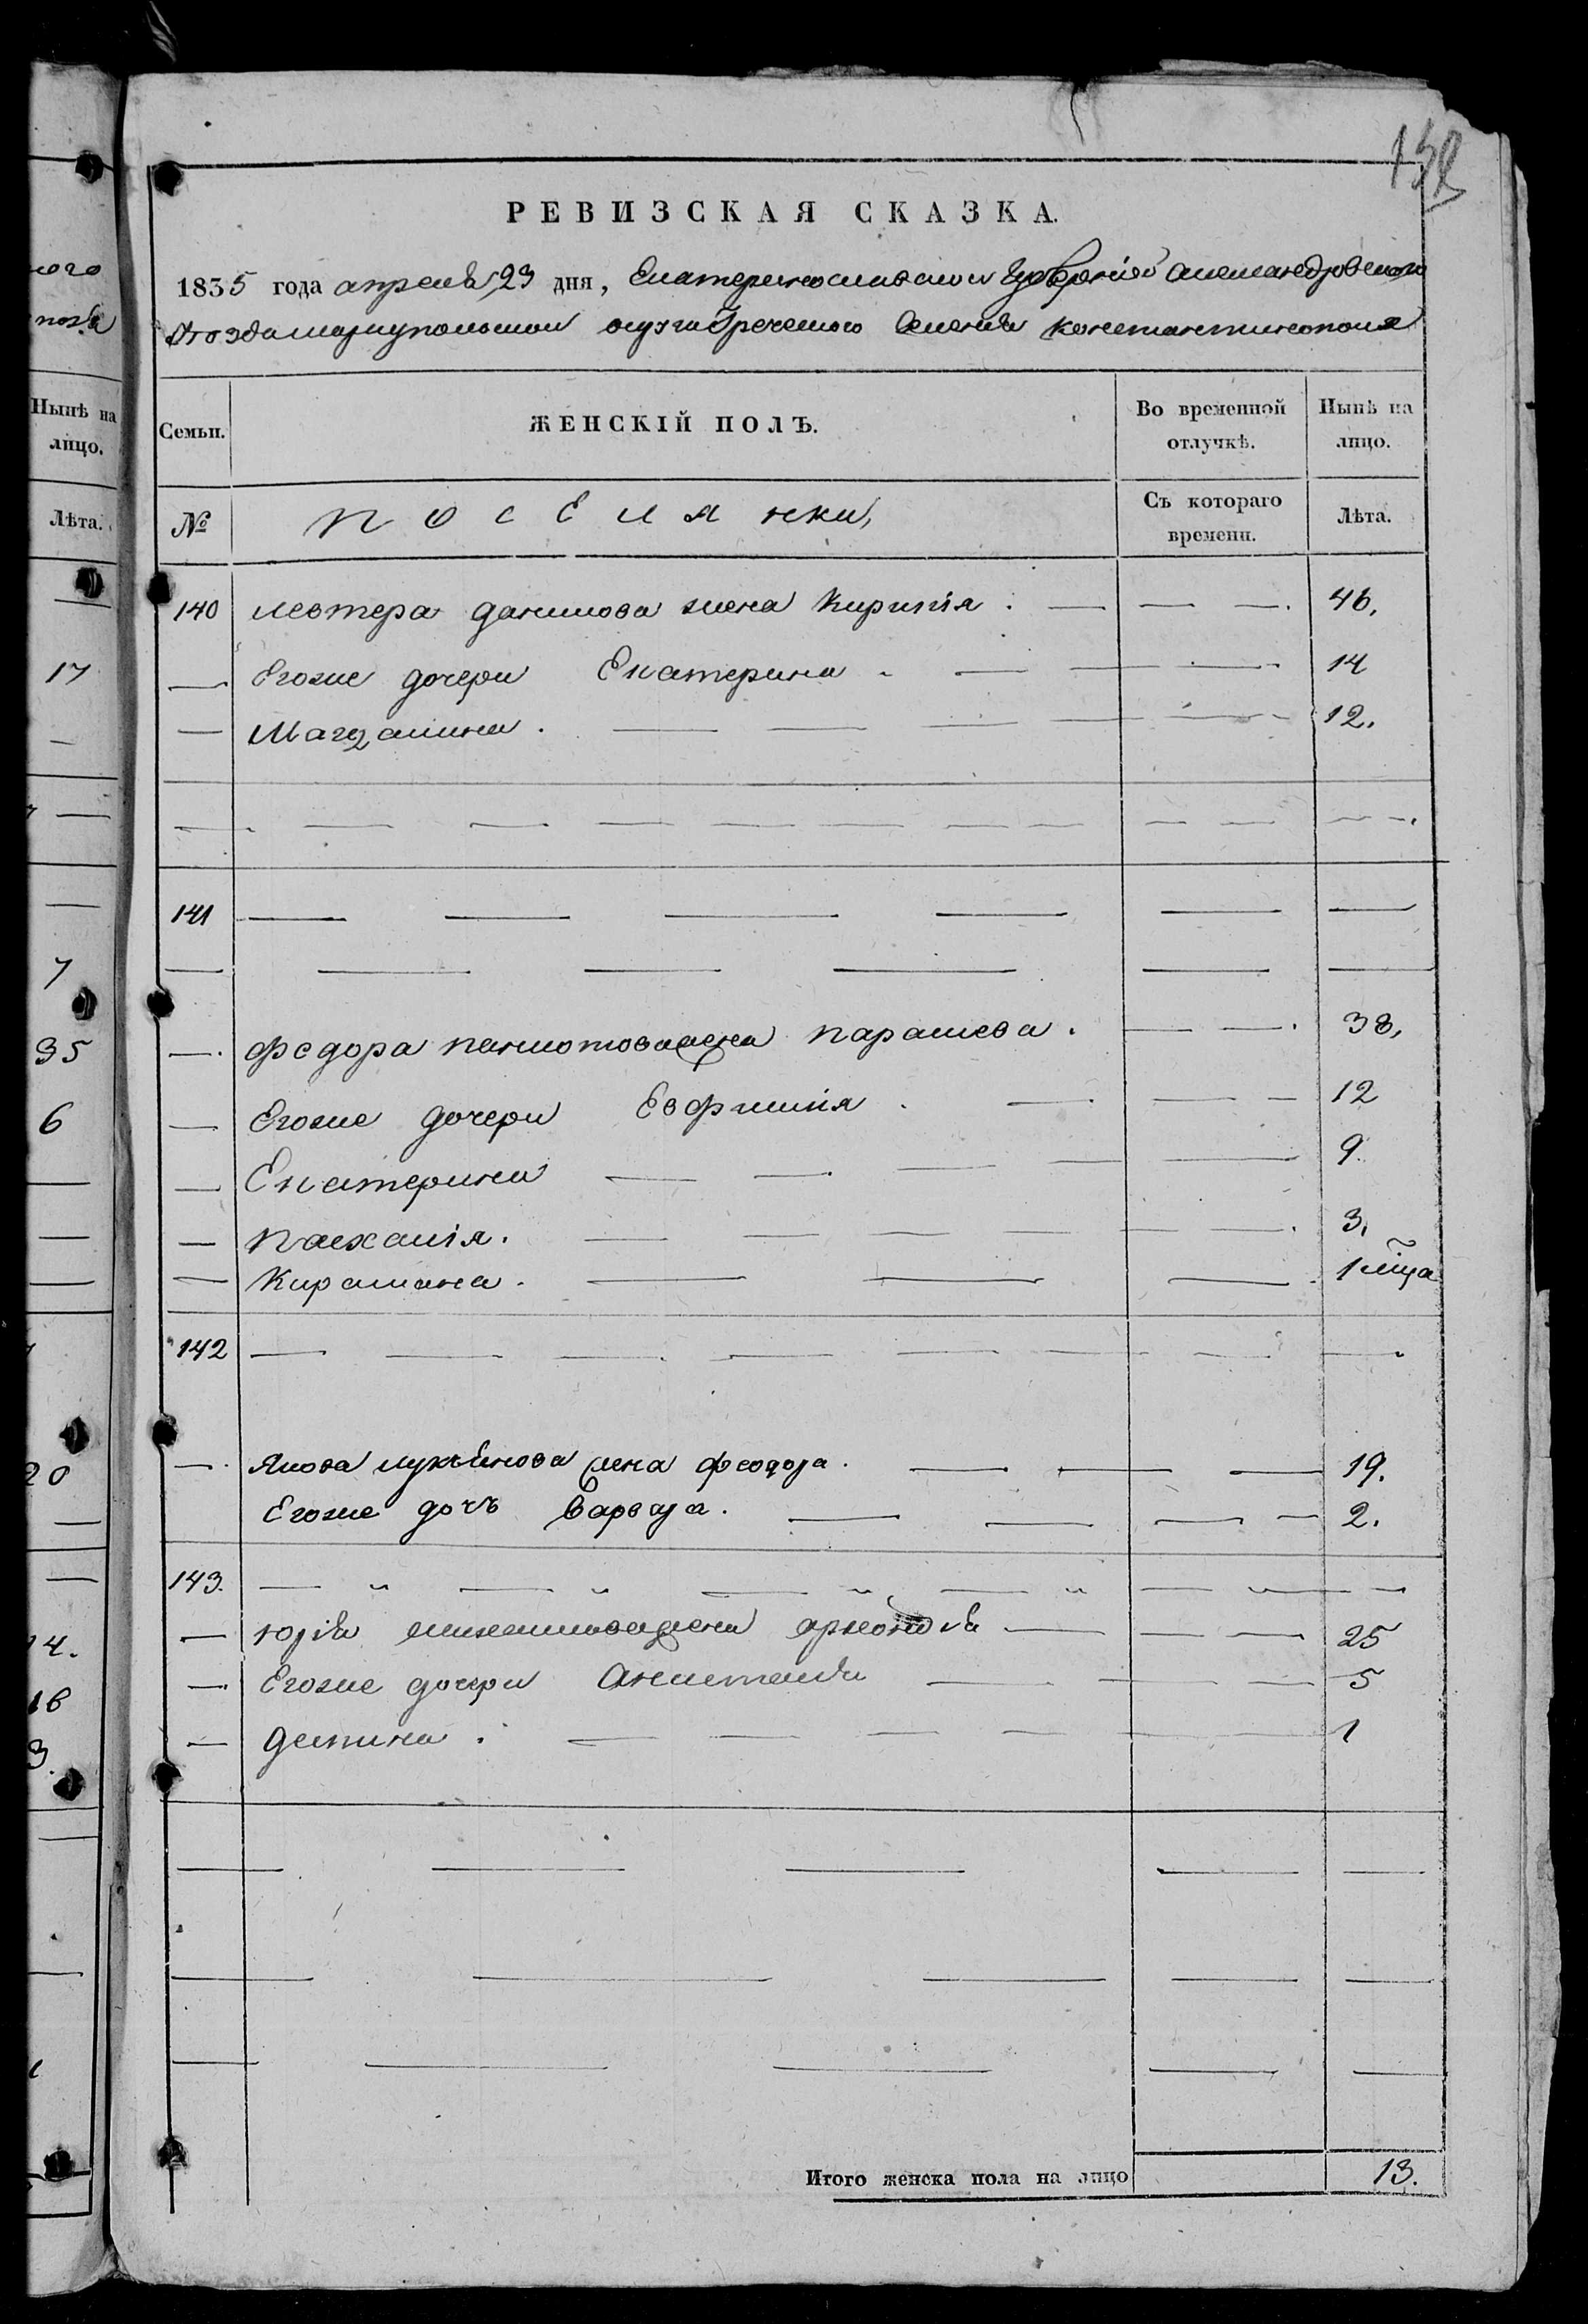 132
РЕВИЗСКАЯ СКАЗКА.
1835 года апреля 23 дня, Екатеринославской Губернии Александровского
уезда мариупольской округа Греческого Селения константинополя
Нынѣ на лицо.
Лѣта.
Семьи.
ЖЕНСКІЙ ПОЛЪ.
Во временной отлучкѣ.
Нынѣ на лицо.
№
поселянки,
Съ котораго времени.
Лѣта.
140 левтера данилова жена Кирикія . — — —. 46,
— Егоже дочери Екатерина . — — — 14
— Магдалина . — — — — — 12.
141 — — — — — —
—. федора жена парашева . — —. 38,
— Егоже дочери Евфимия . — — — 12
— Екатерина — — — — — 9.
— Пасхалія. — — — — — —. 3,
— Кирамана . — — — . 1 мца
142 — — — — — — — — —
—. Якова лукьянова жена феодора . — — — 19.
Егоже дочь варвара . — — — — 2.
143. — — — — — — —
— юрія михаилова жена — — — 25
—. Егоже дочери — — — — 5
— деспина . — — — — — — 1
Итого женска пола на лицо 13.
17
7
35
6
20
14.
16
3.